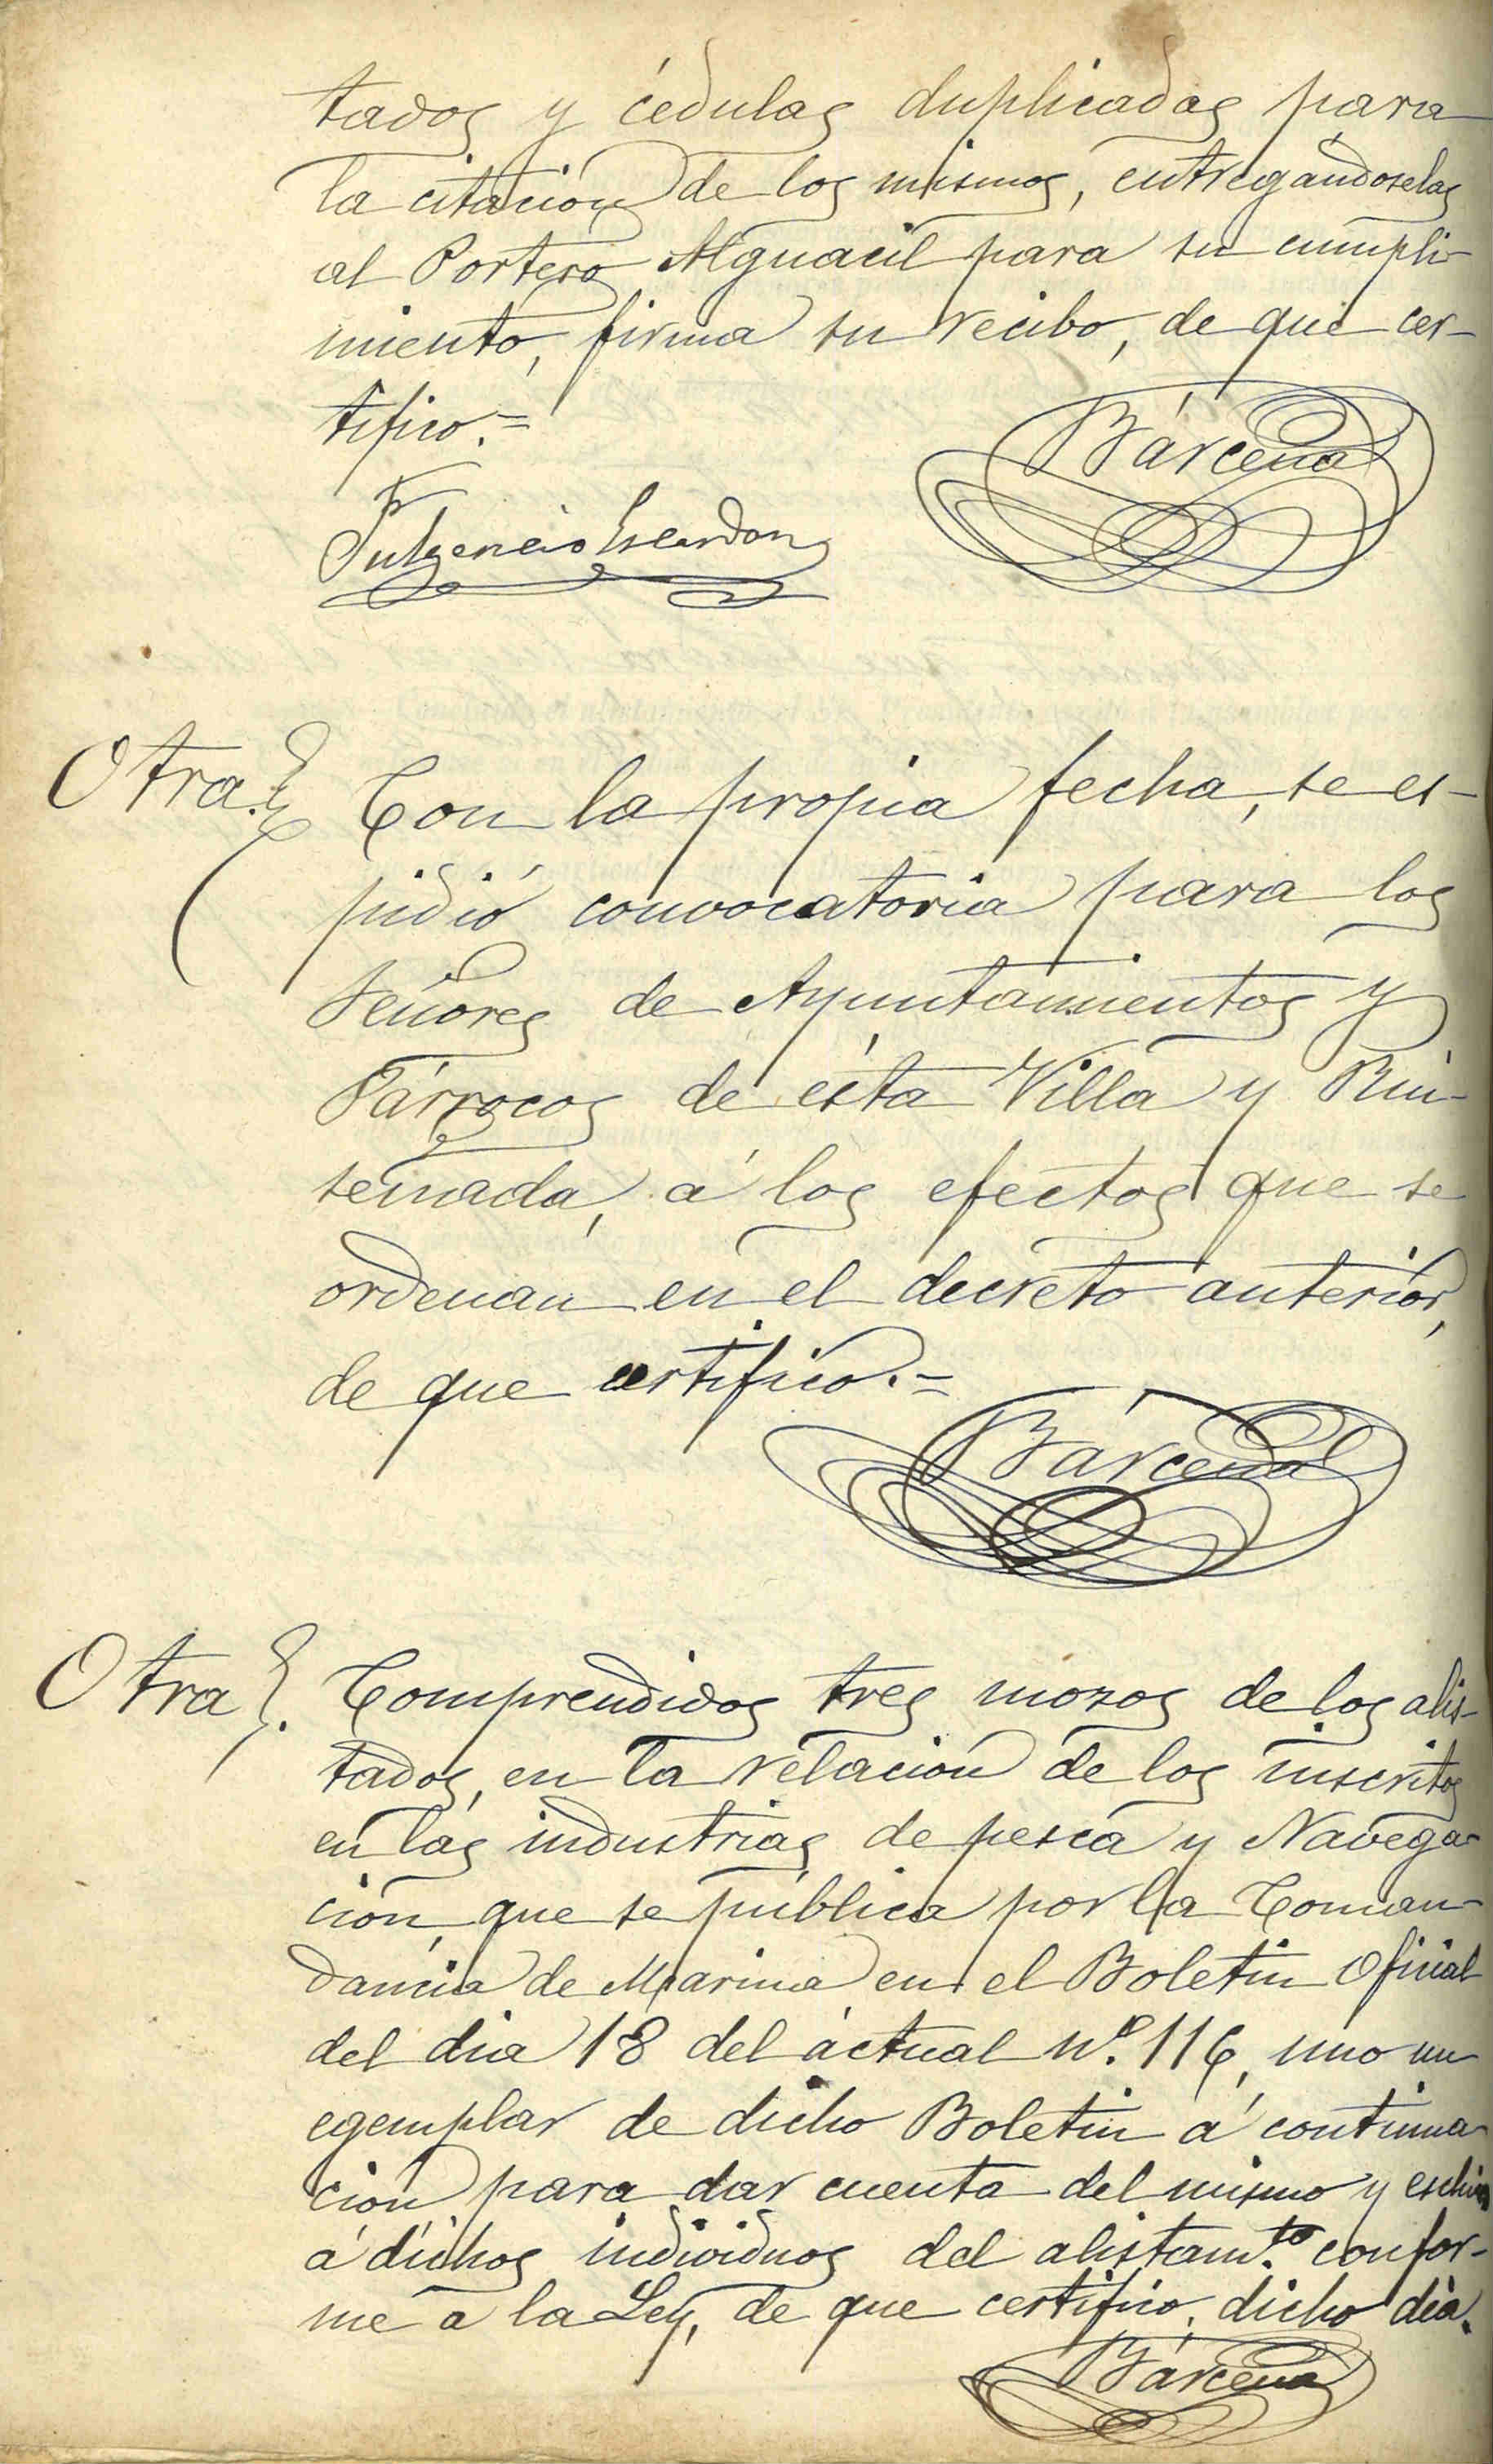 tados y cédulas duplicadas para
la citación de los mismos, entregándoselas
al Portero Alguacil para su cumpli-
miento, firma su recibo, de que cer-
tifico.=
Bárcena
Fulgencio Escandon
Otra. Con la propia fecha, se es-
pidió convocatoria para los
Señores de Ayuntamientos y
Párrocos de ésta Villa y Rui-
señada, á los efectos que se
ordenan en el decreto anterior,
de que certifico.=
Bárcena
Otra. Comprendidos tres mozos de los alis-
tados, en la relación de los inscritos
en las industrias de pesca y Navega-
ción, que se pública por la Coman-
dancia de Marina en el Boletin Oficial
del dia 18 del actual nº. 116, uno un
egemplar de dicho Boletin á continua-
ción para dar cuenta del mismo y
á dichos individuos del alistamto. confor-
me a la Ley, de que certifico, dicho dia.
Bárcena